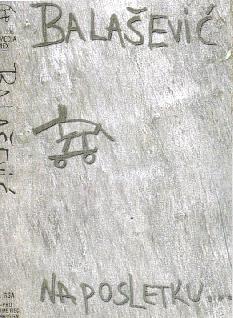 BALAŠEVIĆ
NAPOSLETKU...
BALAŠEVIĆ